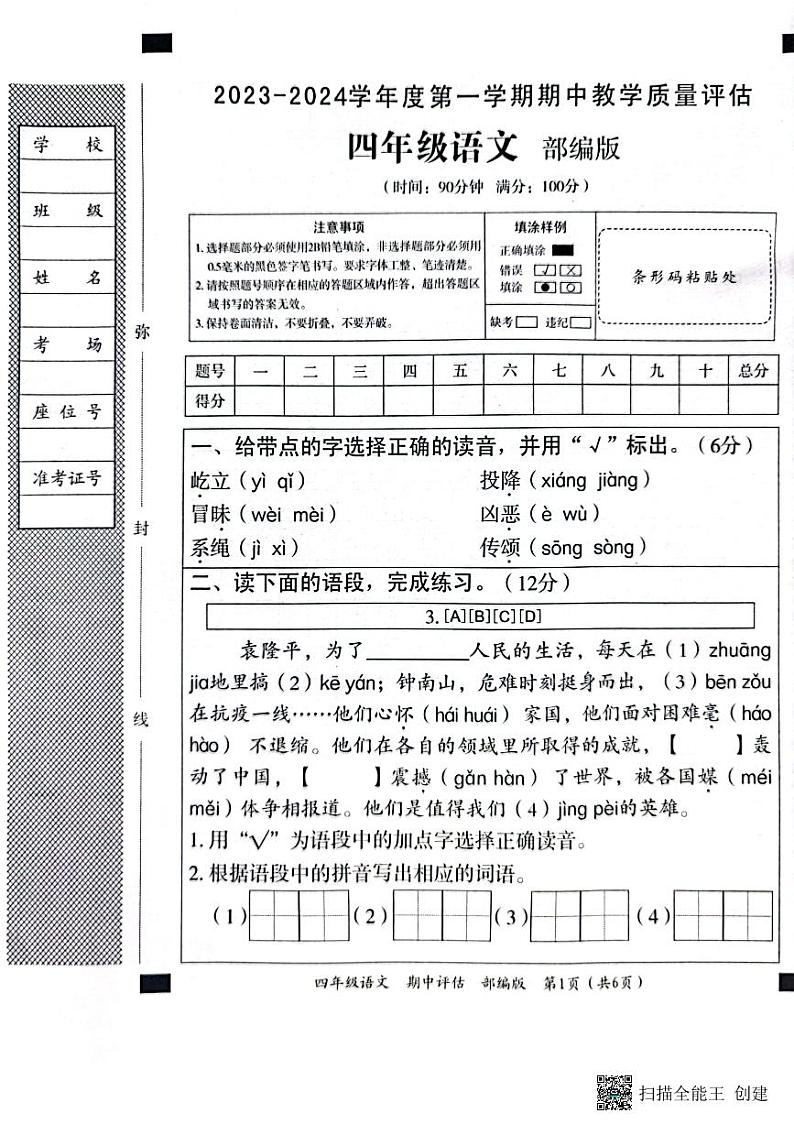 2023-2024学年度第一学期期中教学质量评估
四年级语文 部编版
(时间：90分钟 满分：100分)
学 校
班 级
姓 名
考 场
座 位 号
准考证号
弥
封
线
注意事项
1. 选择题部分必须使用2B铅笔填涂，非选择题部分必须用
0.5毫米的黑色签字笔书写。要求字体工整、笔迹清楚。
2. 请按照题号顺序在相应的答题区域内作答，超出答题区
域书写的答案无效。
3. 保持卷面清洁，不要折叠，不要弄破。
填涂样例
正确填涂
错误
填涂
缺考 违纪
条形码粘贴处
题号 一 二 三 四 五 六 七 八 九 十 总分
得分
一、给带点的字选择正确的读音，并用“√”标出。(6分)
屹立（yì qǐ） 投降（xiáng jiàng）
冒昧（wèi mèi） 凶恶（è wù）
系绳（jì xì） 传颂（sōng sòng）
二、读下面的语段，完成练习。(12分)
3. [A][B][C][D]
袁隆平，为了________人民的生活，每天在（1）zhuāng
jia地里搞（2）kē yán；钟南山，危难时刻挺身而出，（3）bēn zǒu
在抗疫一线……他们心怀（hái huái）家国，他们面对困难毫（háo
hào）不退缩。他们在各自的领域里所取得的成就，【 】轰
动了中国，【 】震撼（gǎn hàn）了世界，被各国媒（méi
měi）体争相报道。他们是值得我们（4）jìng pèi的英雄。
1. 用“√”为语段中的加点字选择正确读音。
2. 根据语段中的拼音写出相应的词语。
（1） （2） （3） （4）
四年级语文 期中评估 部编版 第1页（共6页）
扫描全能王 创建